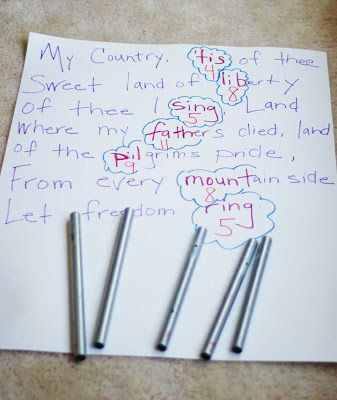 My Country, 'tis of thee
4
Sweet land of liberty
8
Of thee I sing, Land
5
where my fathers died, land
11
of the pilgrims pride,
9
From every mountain side
8
Let freedom ring
5